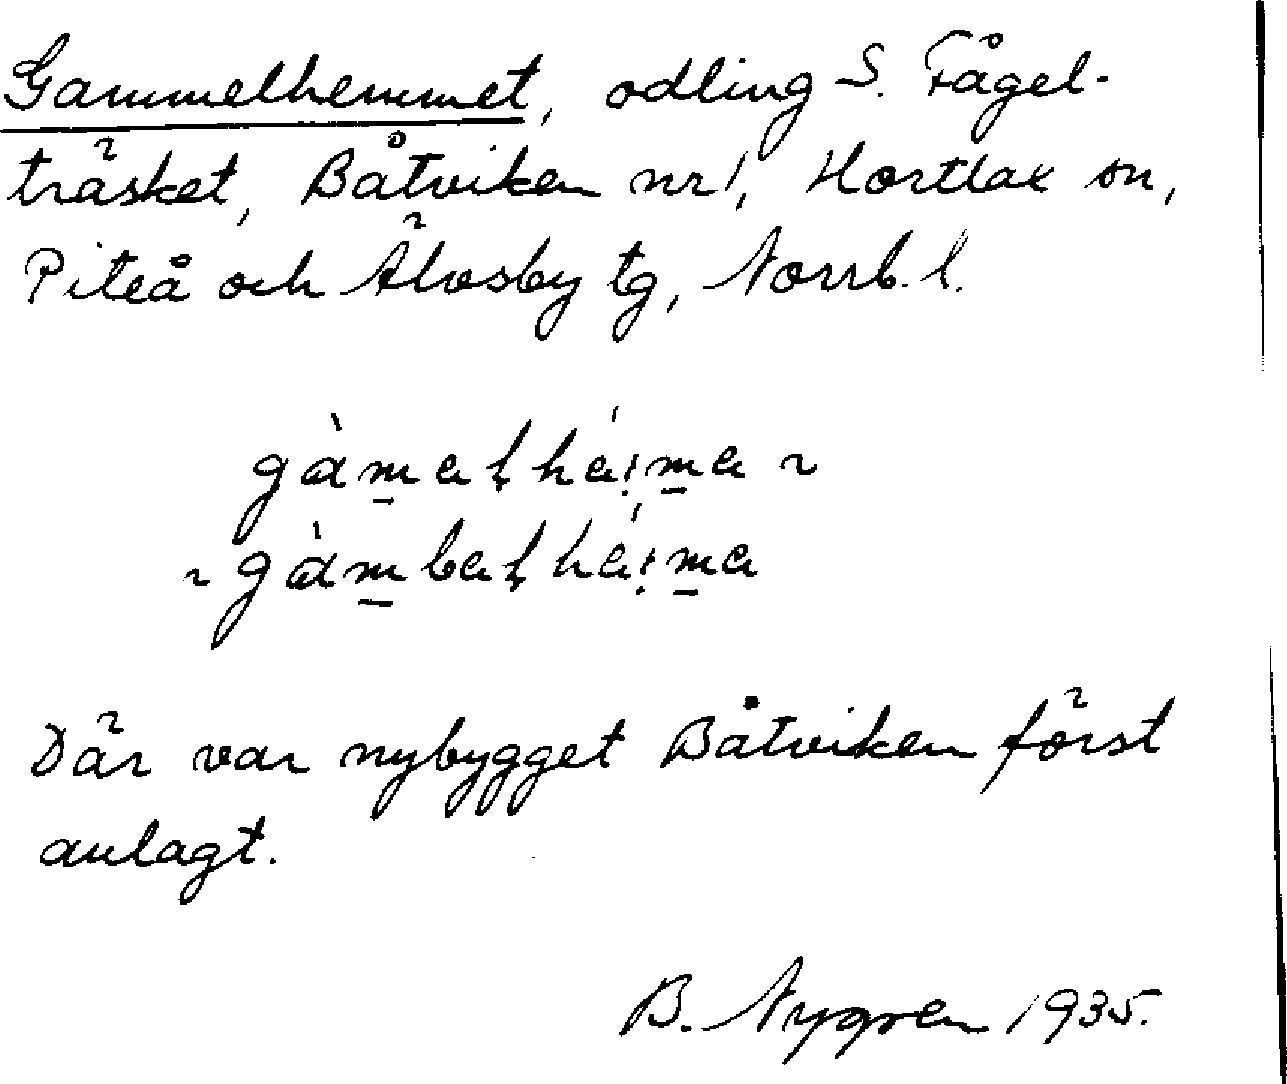 Gammelhemmet, odling S. Fågel-
träsket, Båtviken nr 1, Hortlax sn,
Piteå och Älvsby tg, Norrb. l.
gàmalháima ~
~ gàmbalháima
Där var nybygget Båtviken först
anlagt.
B. Nygren 1935.